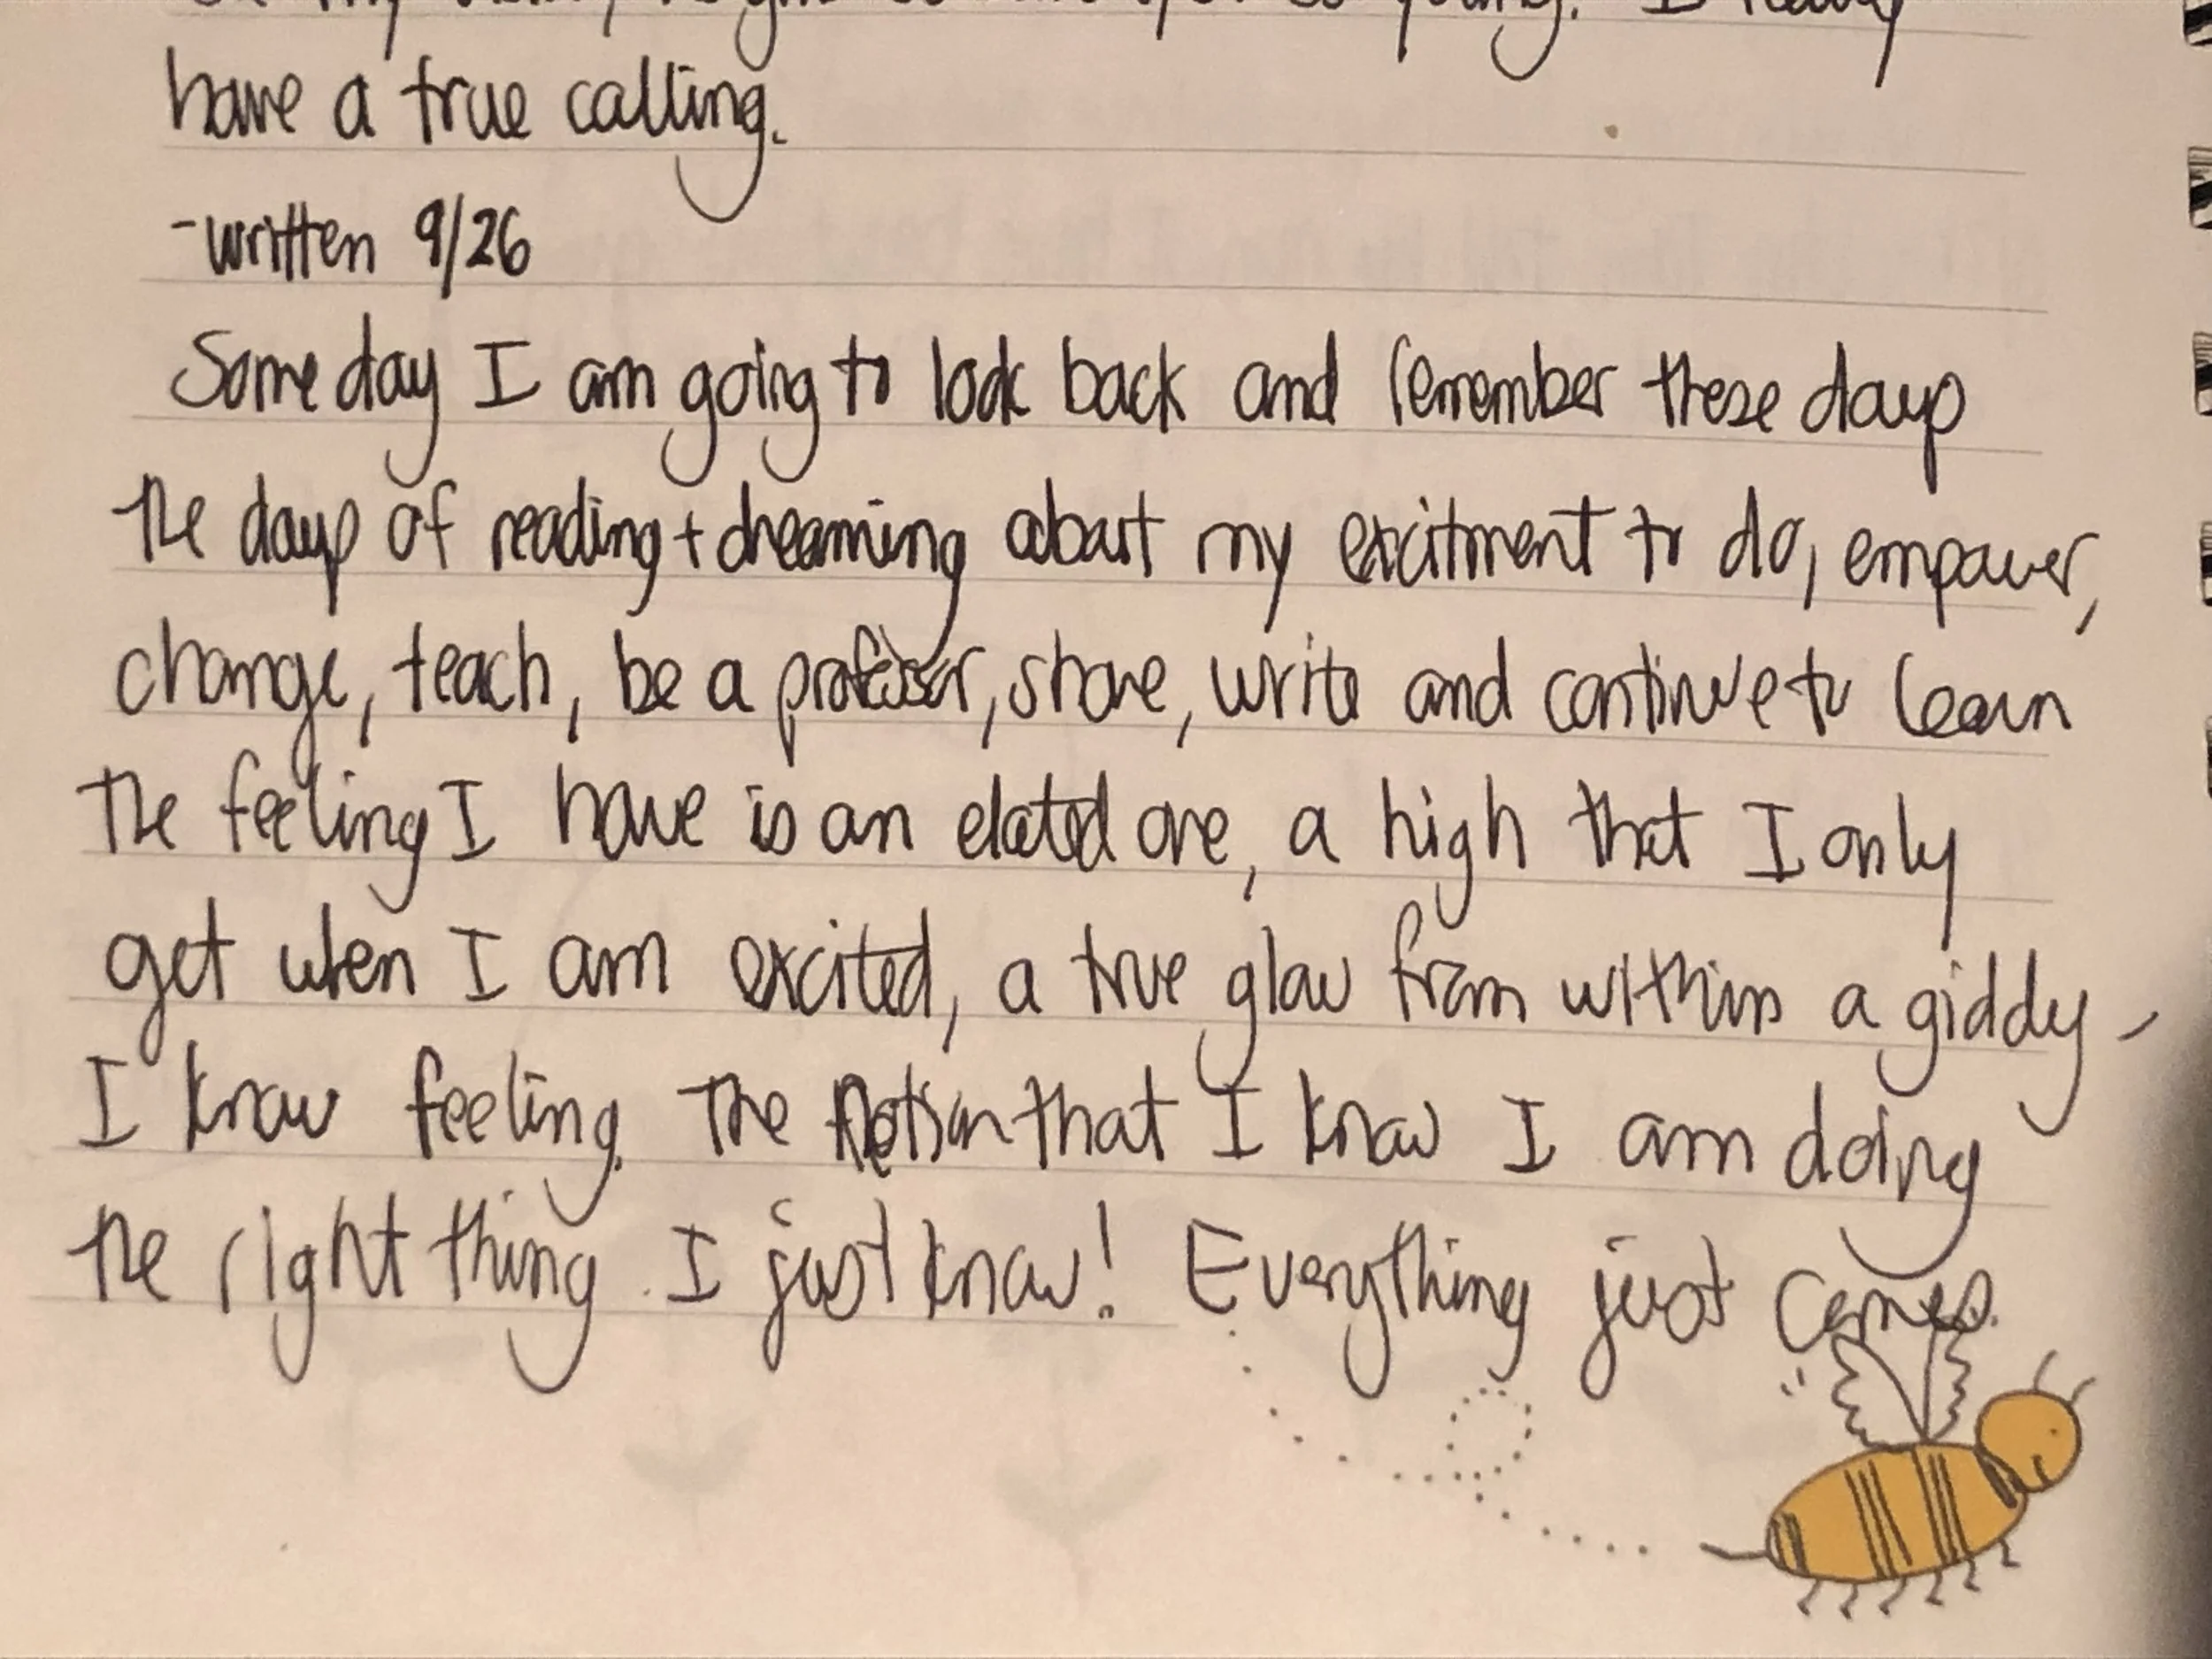 have a true calling.
-written 9/26
Some day I am going to look back and remember these days
the days of reading + dreaming about my excitment to do, empower,
change, teach, be a professor, share, write and continue to learn
The feeling I have is an elated one, a high that I only
get when I am excited, a true glow from within a giddy,
I know feeling. The notion that I know I am doing
the right thing. I just know! Everything just comes.